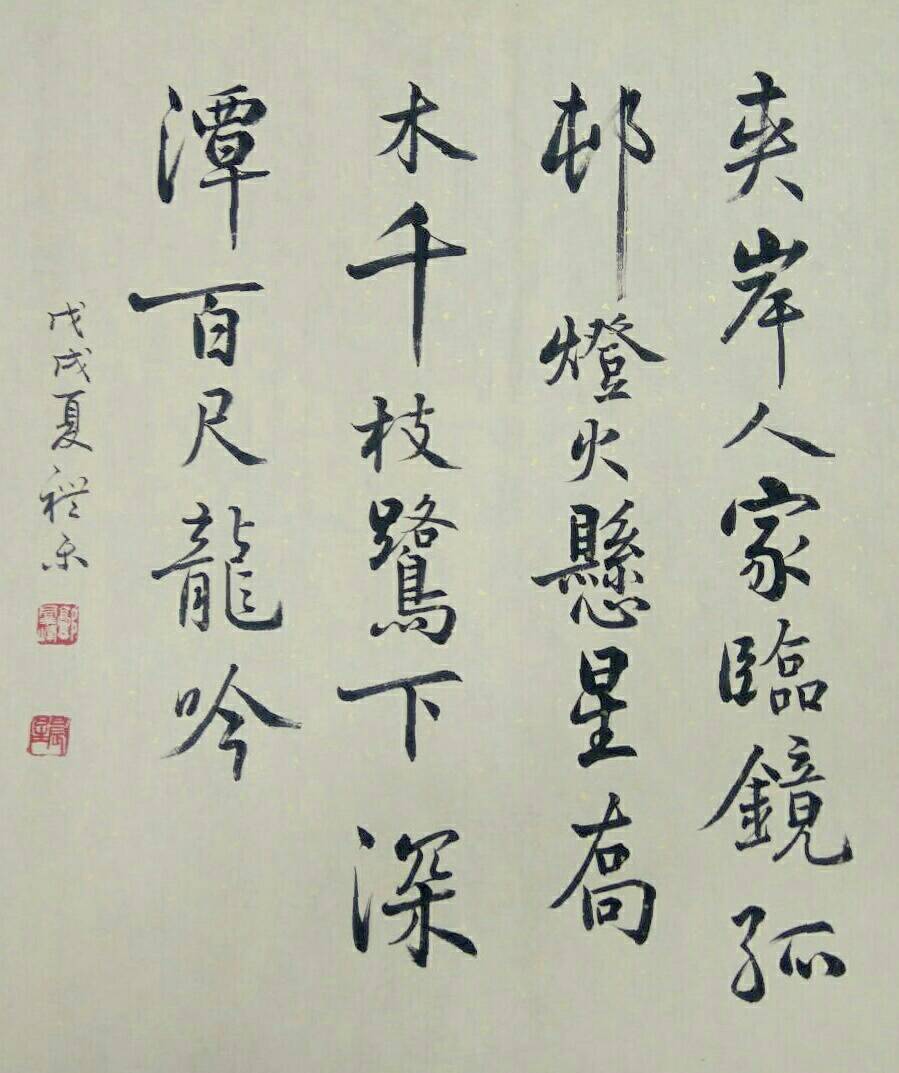 夾岸人家臨鏡孤
邨燈火懸星喬
木千枝鷺下深
潭百尺龍吟
戊戌夏